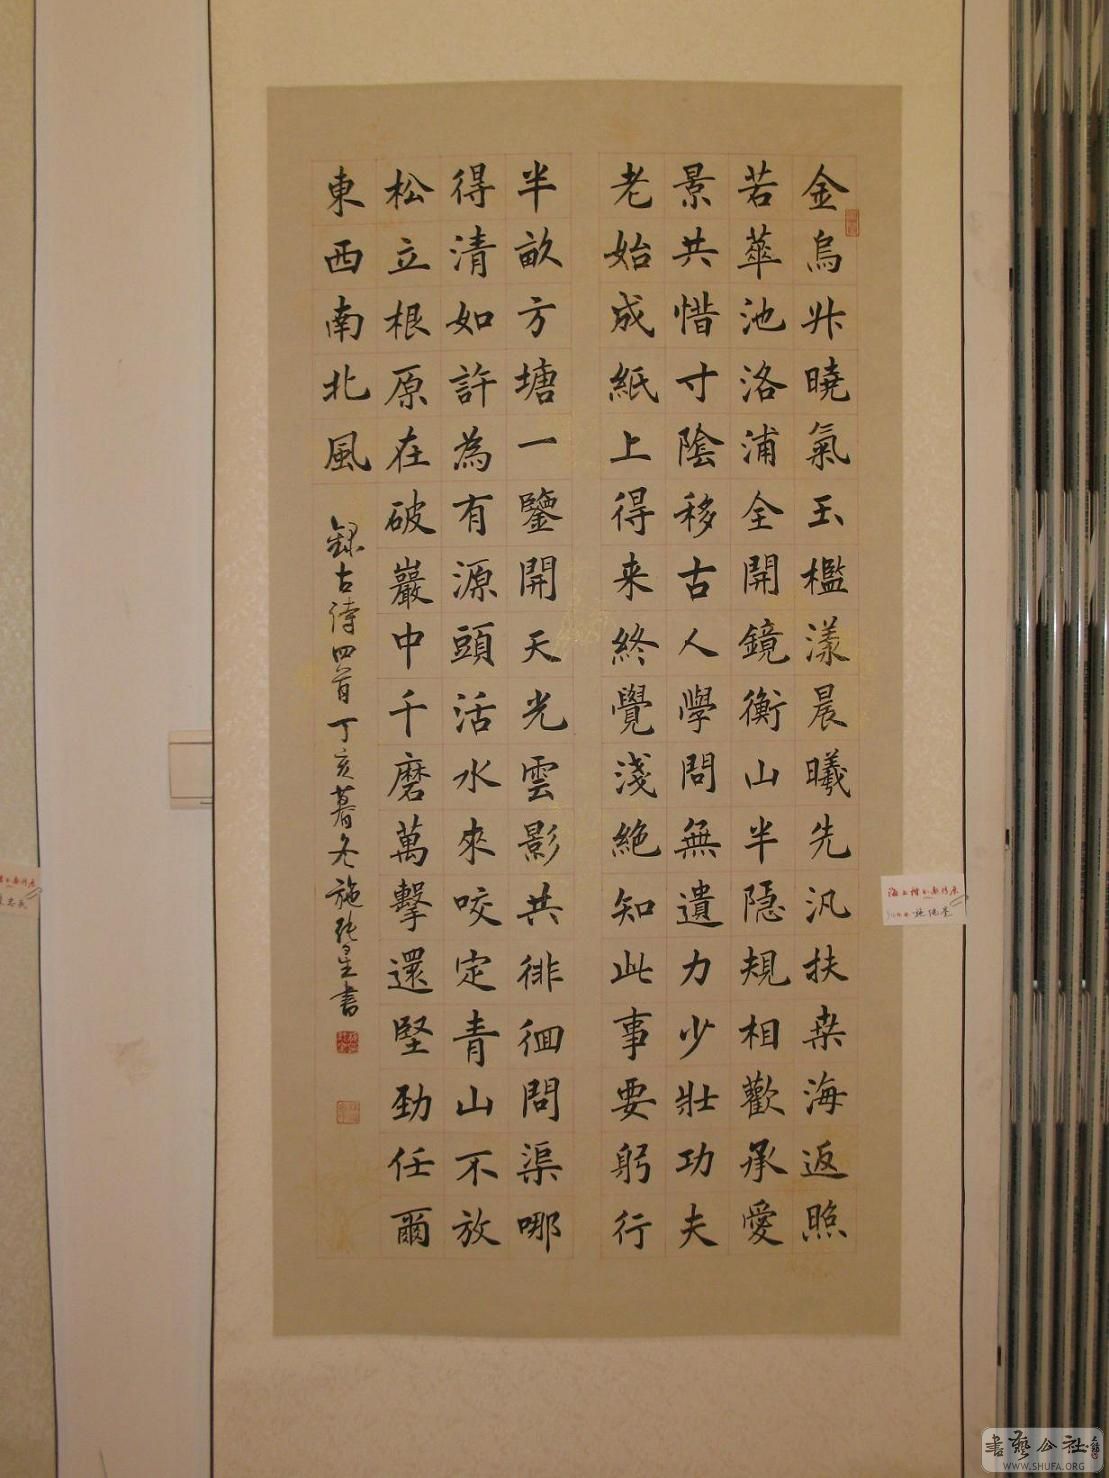 金烏升曉氣玉檻漾晨曦先汎扶桒海返照
若華池洛浦全開鏡衡山半隱規相歡承愛
景共惜寸陰移古人學問無遺力少壯功夫
老始成紙上得来終覺淺絶知此事要躬行
半畝方塘一鑒開天光雲影共徘徊問渠哪
得清如許為有源頭活水來咬定青山不放
松立根原在破巖中千磨萬擊還堅勁任爾
東西南北風
録古诗四首丁亥暮冬施純星書
書藝公社
WWW.SHUFA.ORG